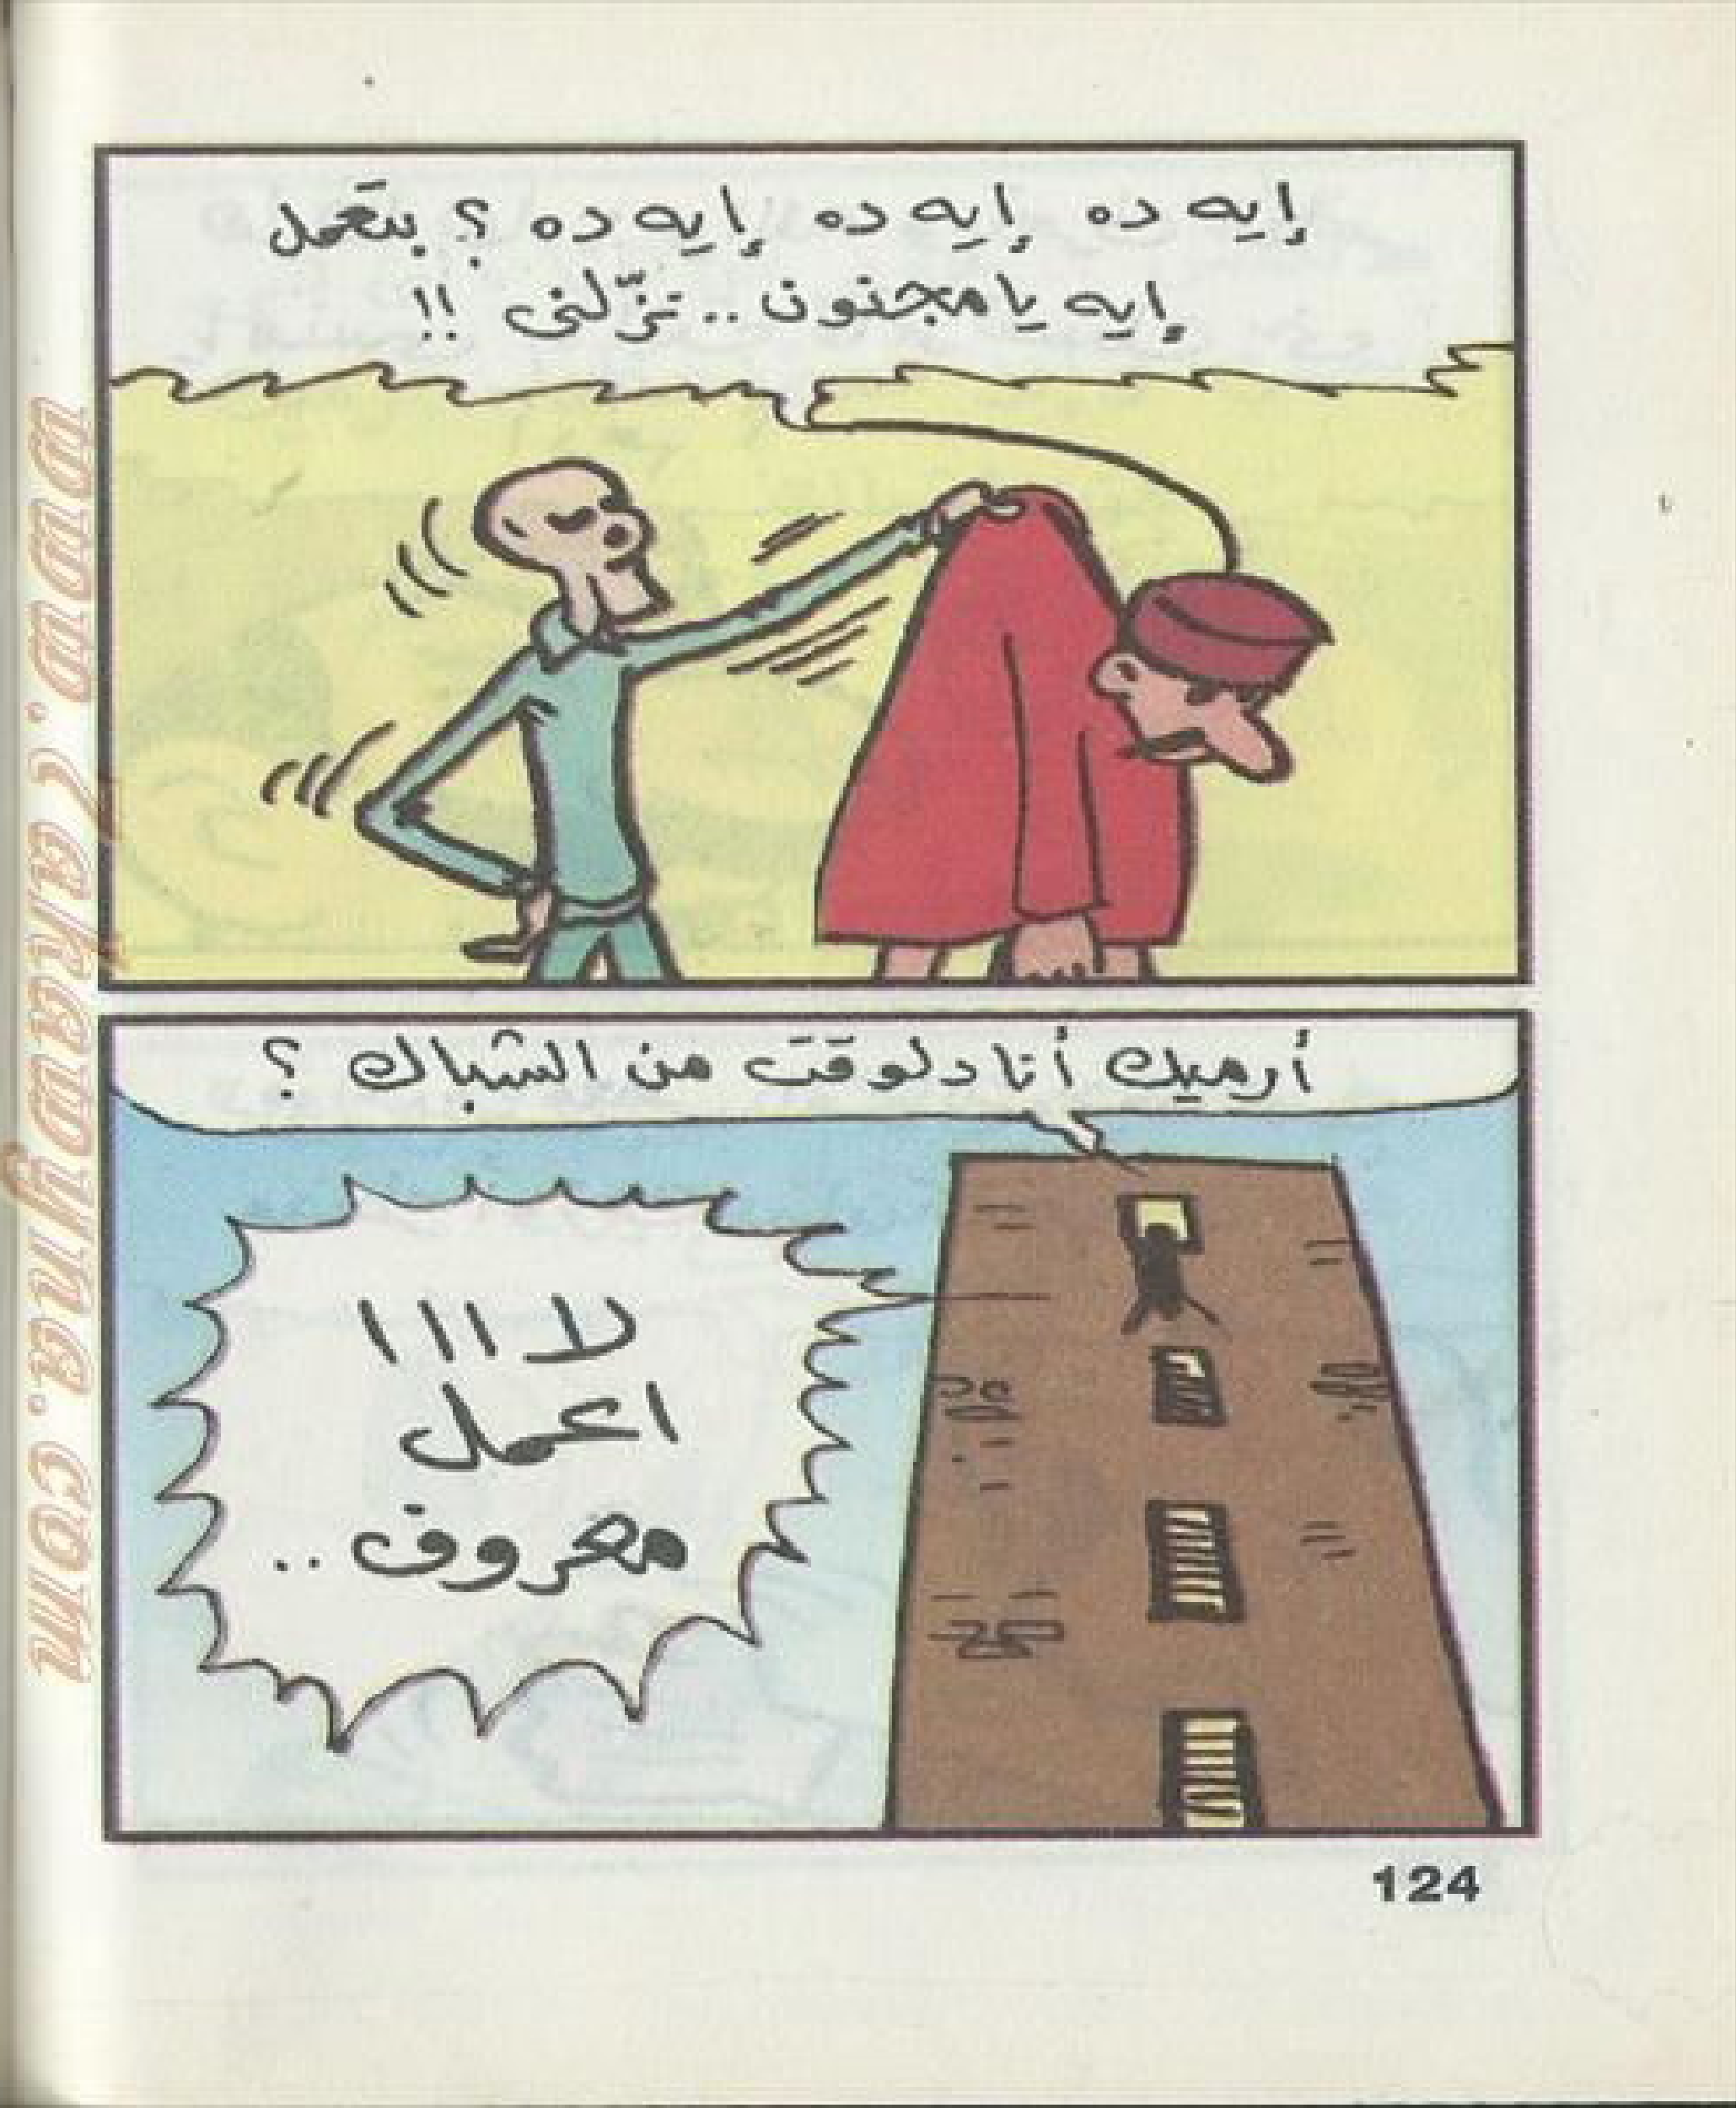 إيه ده إيه ده إيه ده ؟ بتعمل
إيه يا مجنون .. نزّلنى !!
أرميك أنا دلوقت من الشباك ؟
لا ا ا ا
اعمل
معروف ..
124
www.rakawyna.com